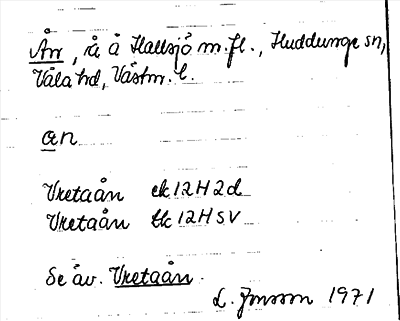 Ån, rå å Hallsjö m.fl., Huddunge sn,
Våla hd, Västm. l.
an
Vretaån ek 12H2d
Vretaån tk 12HSV
Se äv. Vretaån.
L. Jonsson 1971